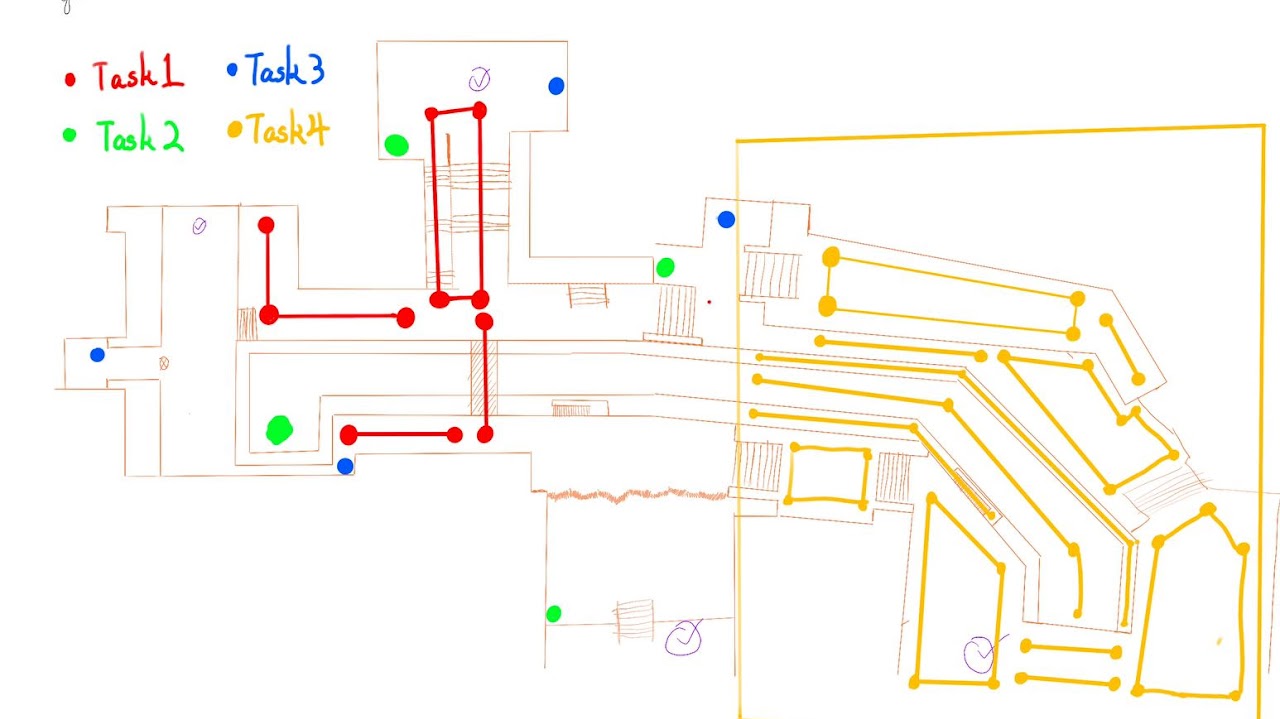 Task1 Task3
Task2 Task4